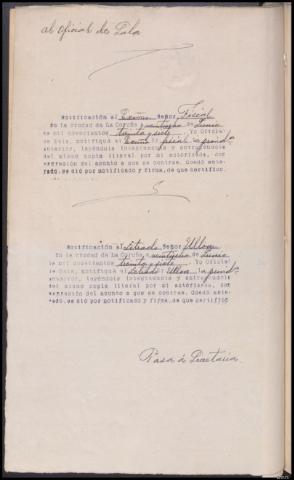 al Oficial de Sala
Notificación al Excmo. Señor Fiscal
En la ciudad de La Coruña a veintiocho de Junio
de mil novecientos treinta y siete. Yo Oficial
de Sala, notifiqué al Excmo. Fiscal la
anterior, leyéndole íntegramente y entregándole
del mismo copia literal por mi autorizada, con
expresión del asunto a que se contrae. Quedó ente-
rado, se dió por notificado y firma, de que certifico.
Notificación al Letrado Señor Ulloa
En la ciudad de La Coruña a veintiocho de Junio
de mil novecientos treinta y siete. Yo Oficial
de Sala, notifiqué al Letrado Ulloa la
anterior, leyéndole íntegramente y entregándole
del mismo copia literal por mi autorizada, con
expresión del asunto a que se contrae. Quedó ente-
rado, se dió por notificado y firma, de que certifico
Pasa a Secretaria